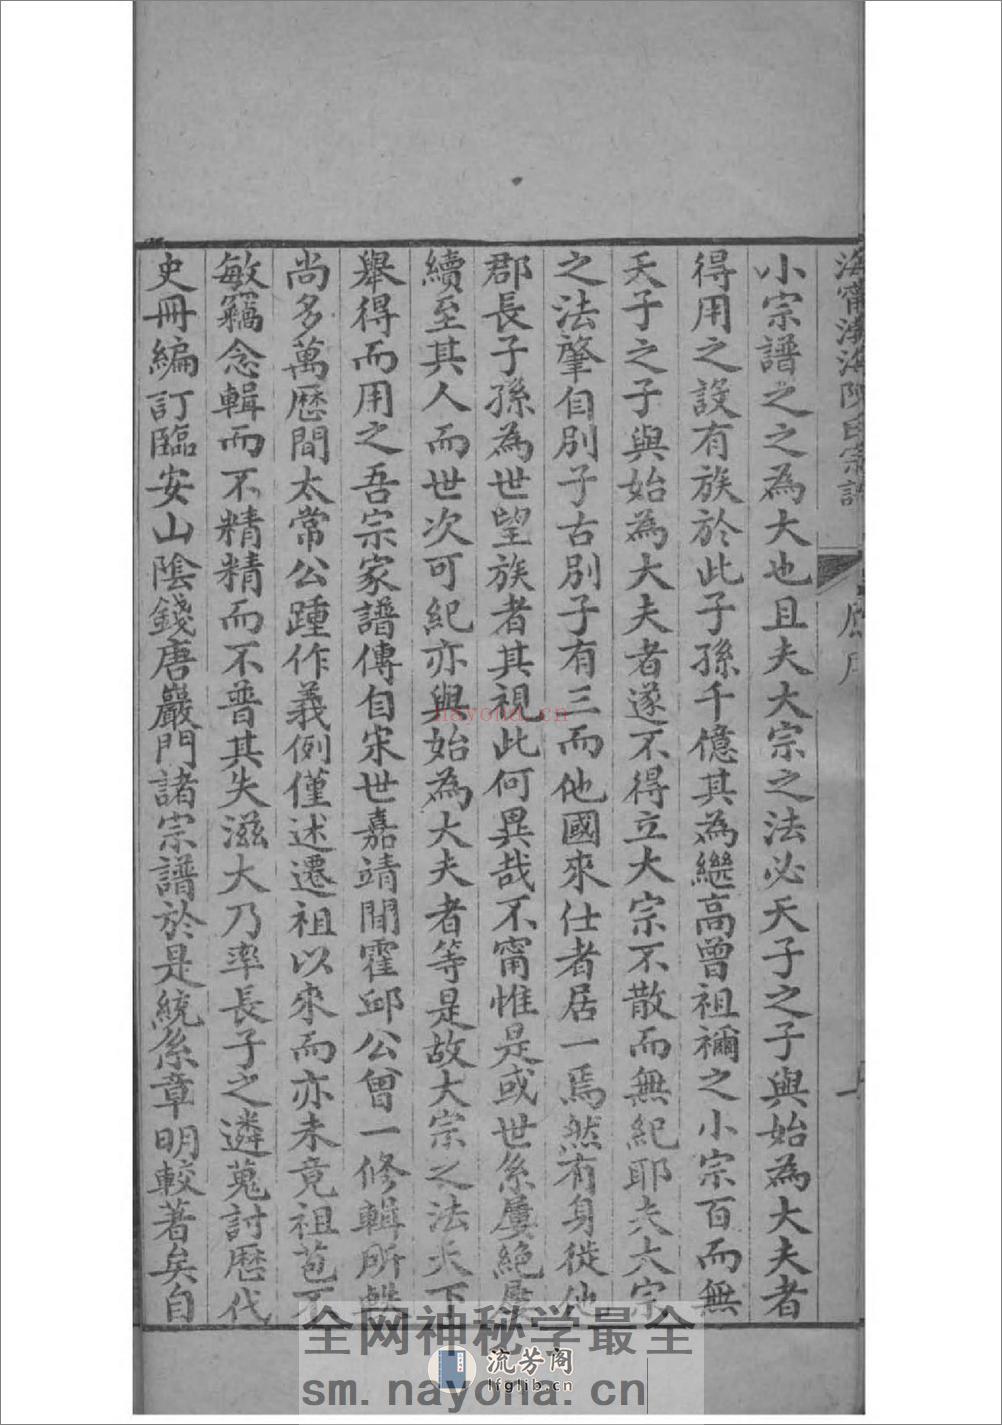 海寧渤海陳氏宗譜
小宗譜之之為大也且夫大宗之法必天子之子與始為大夫者
得用之設有族於此子孫千億其為繼高曾祖禰之小宗百而無
天子之子與始為大夫者遂不得立大宗不散而無紀耶夫大宗
之法肇自別子古別子有三而他國來仕者居一焉然有身徙他
郡長子孫為世望族者其視此何異哉不甯惟是或世系屢絕屢
續至其人而世次可紀亦與始為大夫者等是故大宗之法天下
舉得而用之吾宗家譜傳自宋世嘉靖間霍邱公曾一修輯所
尚多萬歷間太常公踵作義例僅述遷祖以來而亦未竟祖苞不
敏竊念輯而不精精而不普其失滋大乃率長子之遴蒐討歷代
史冊編訂臨安山陰錢唐嚴門諸宗譜於是統系章明較著矣自
nayona.cn
全网神秘学最全
流芳阁
lfglib.cn
sm.nayona.cn